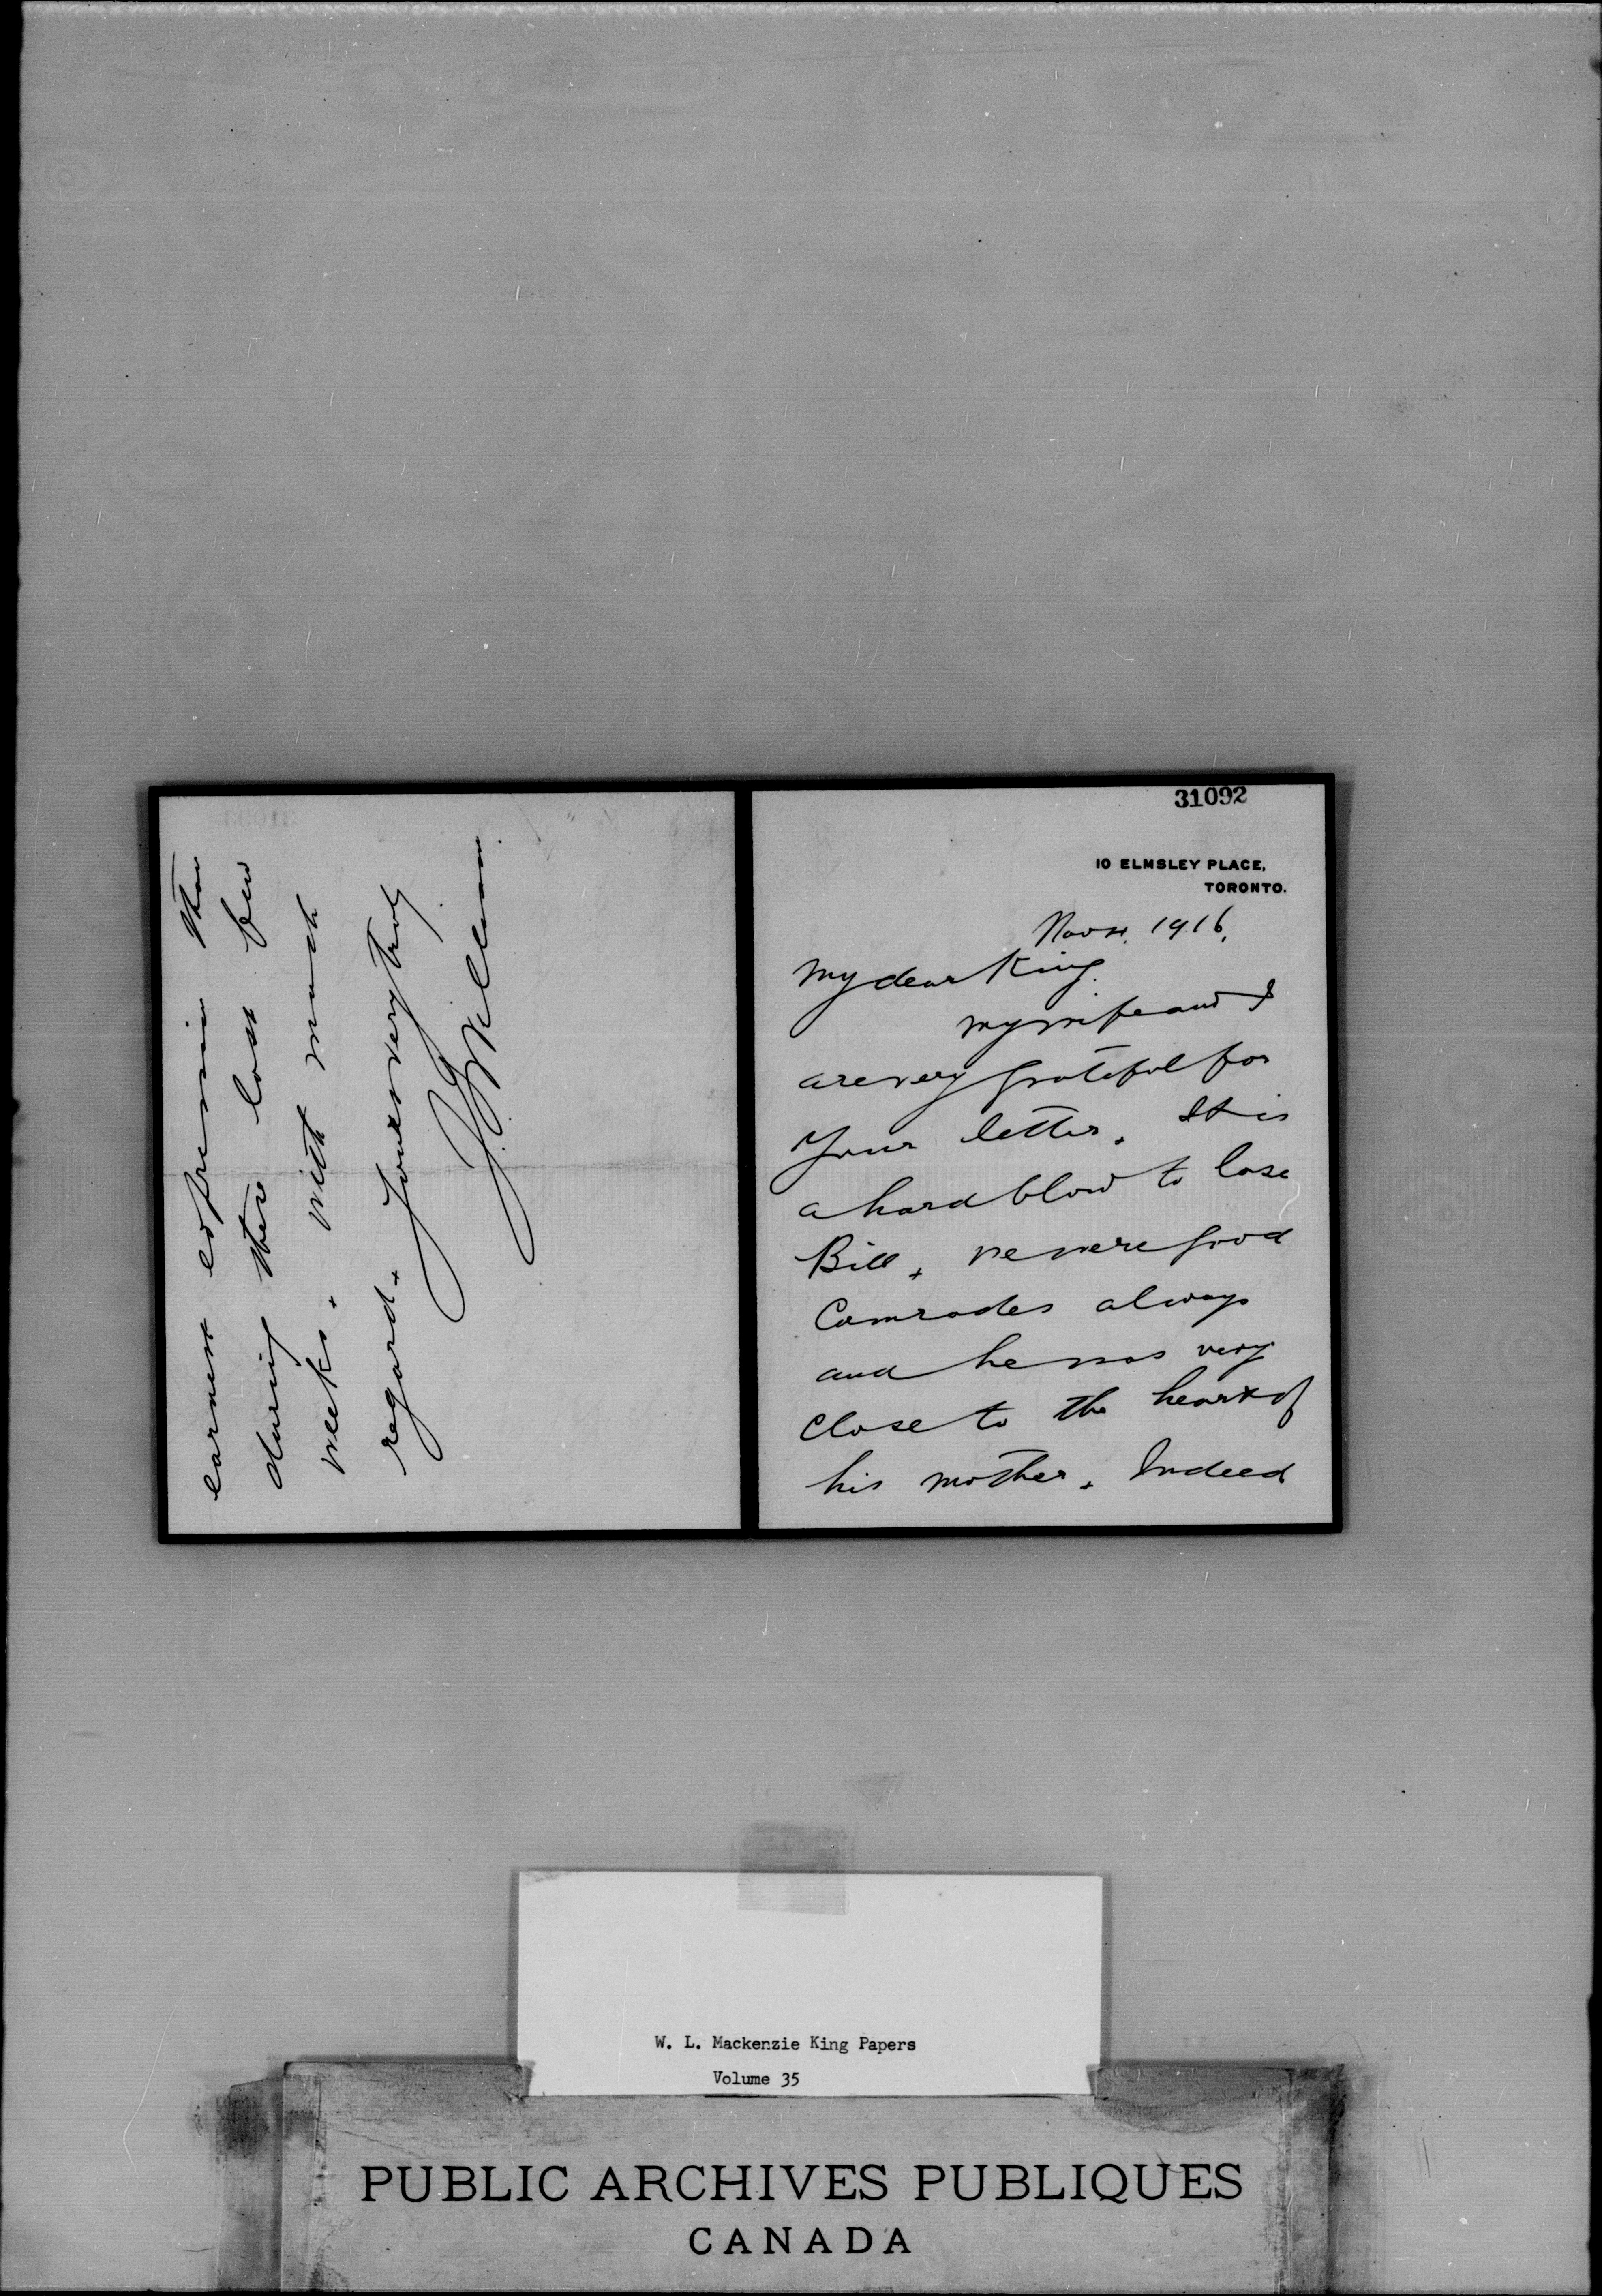 31092
10 ELMSLEY PLACE,
TORONTO.
Nov 1916.
My dear King.
My wife and I
are very grateful for
your letter. It is
a hard blow to lose
Bill. We were good
Comrades always
and he was very
close to the heart of
his mother. Indeed
earnest expression than
during these last few
weeks. With much
regard. Yours very truly
J. S. Willison.
W. L. Mackenzie King Papers
Volume 35
PUBLIC ARCHIVES PUBLIQUES
CANADA